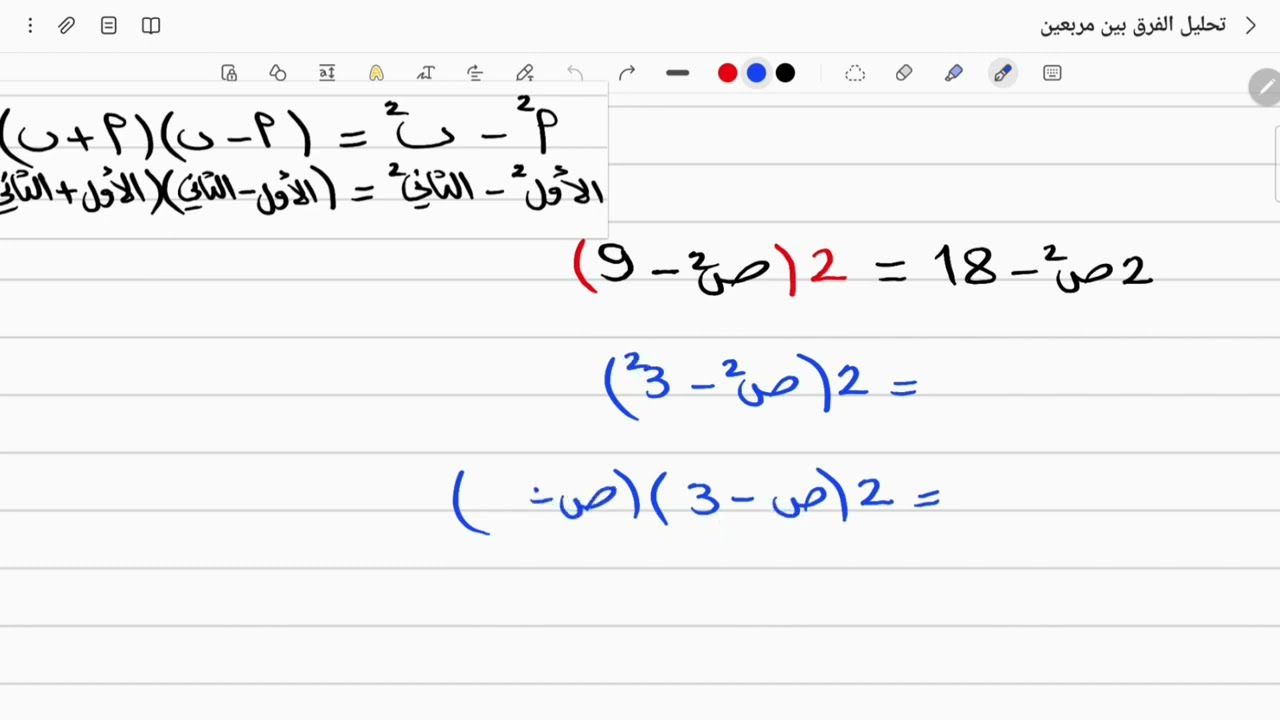 تحليل الفرق بين مربعين
م² - ب² = (م - ب)(م + ب)
الأول² - الثاني² = (الأول - الثاني)(الأول + الثاني
2ص² - 18 = 2(ص² - 9)
= 2(ص² - 3²)
= 2(ص - 3)(ص ÷ )